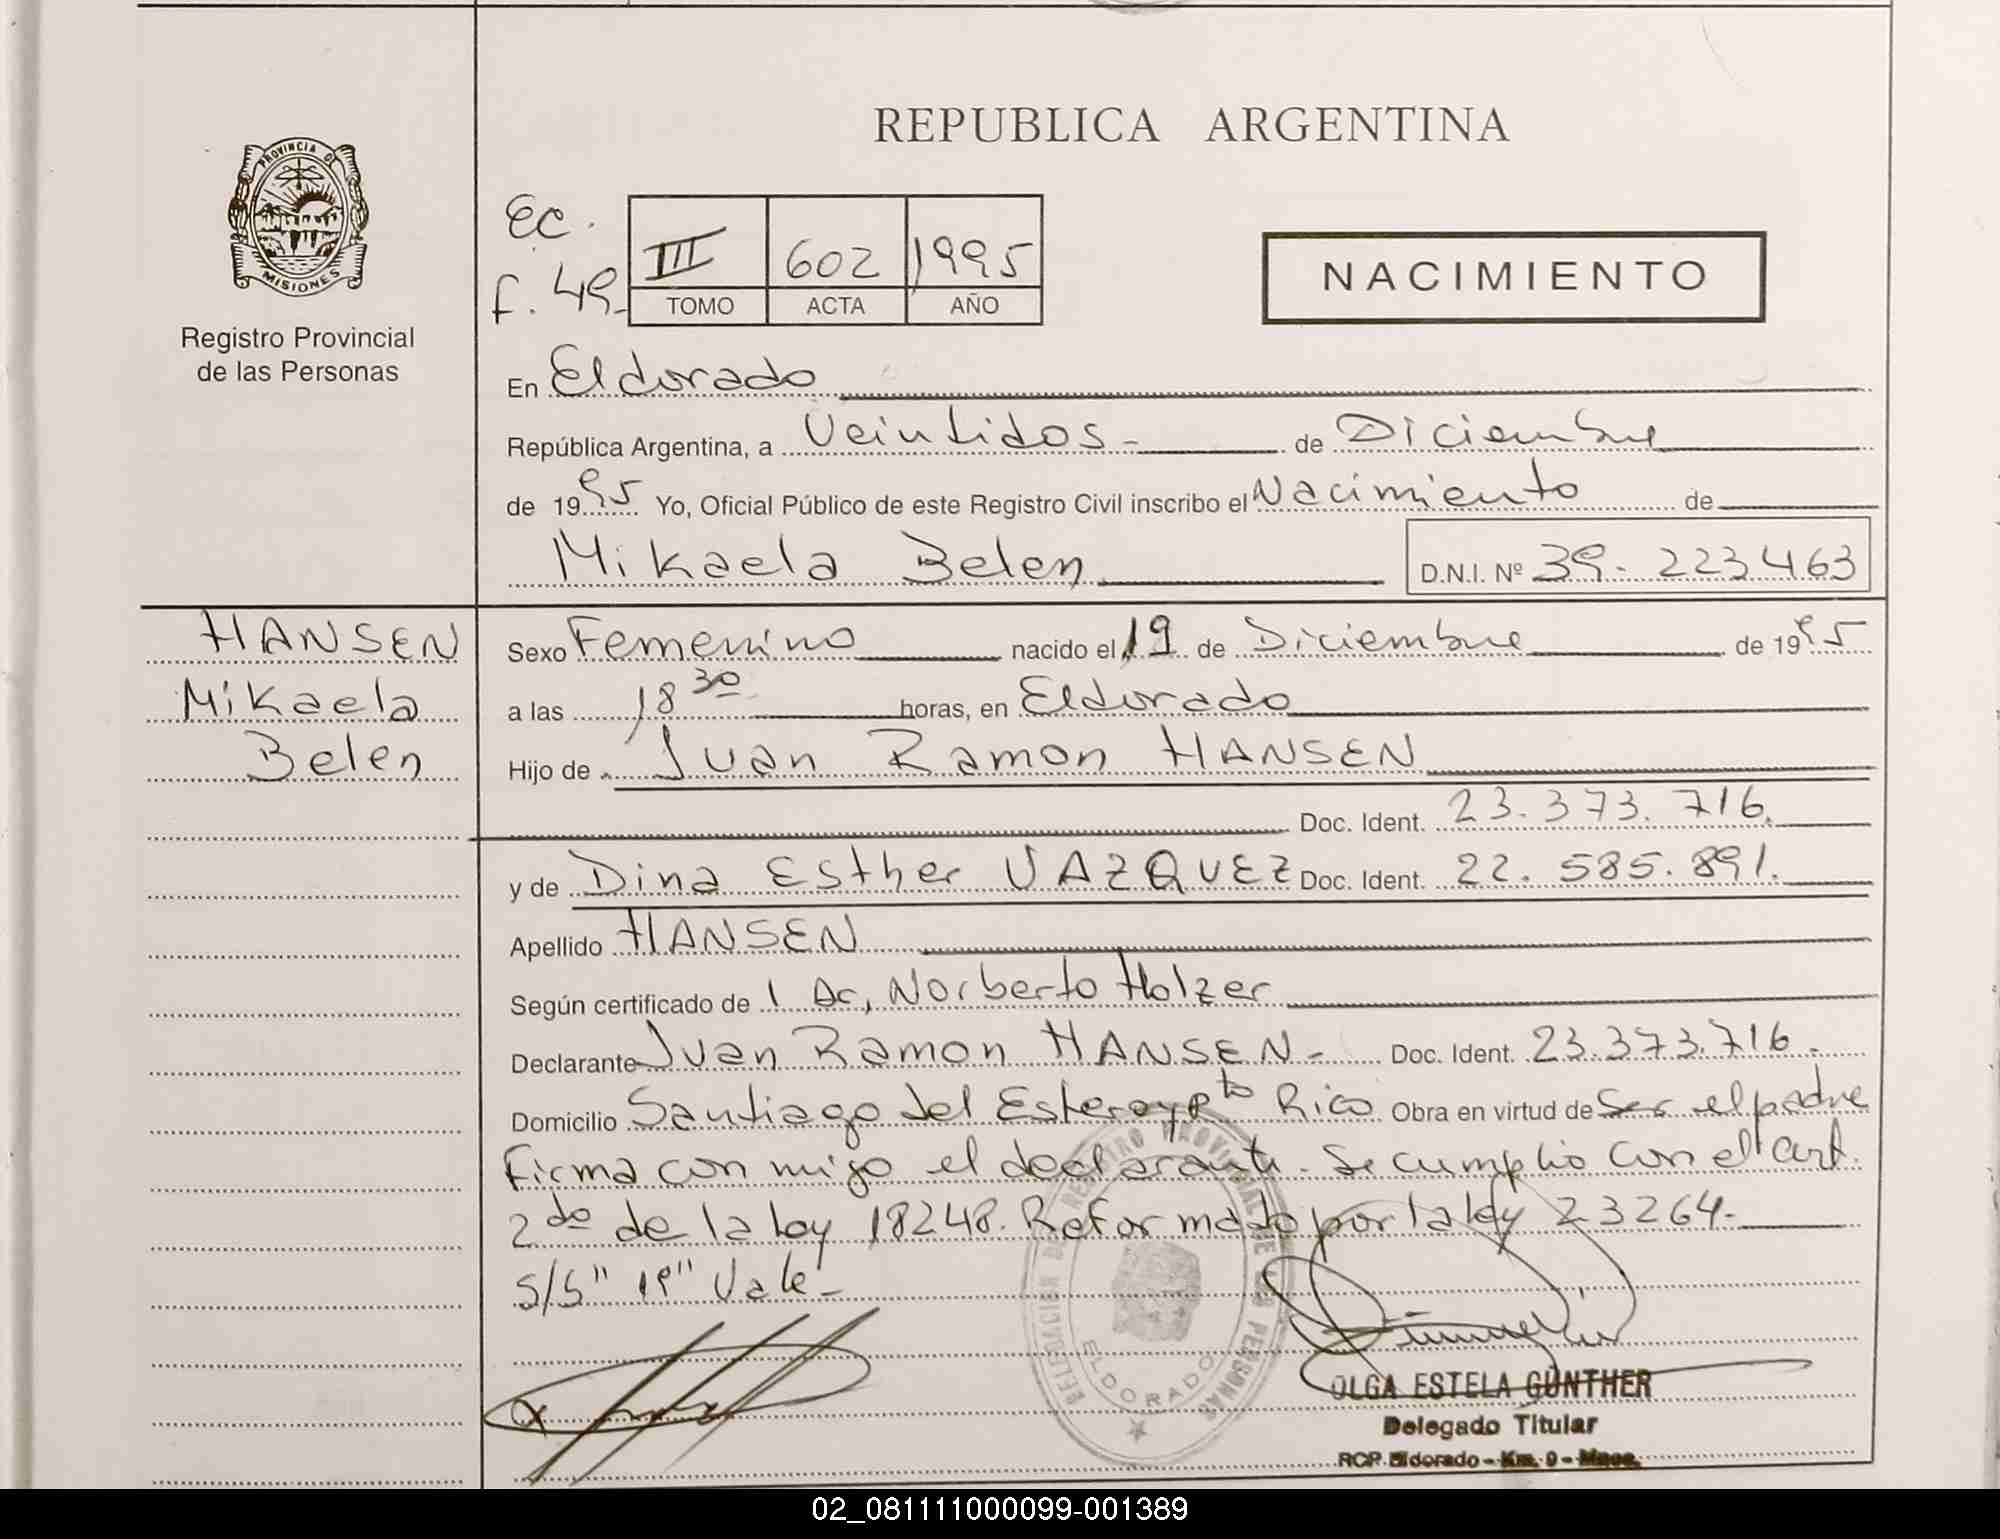 REPUBLICA ARGENTINA
PROVINCIA DE
MISIONES
Registro Provincial
de las Personas
EC.
F. 49
III 602 1995
TOMO ACTA AÑO
NACIMIENTO
En Eldorado
República Argentina, a Veintidos- de Diciembre
de 1995 Yo, Oficial Público de este Registro Civil inscribo el Nacimiento de
Mikaela Belen D.N.I. Nº 39.223463
HANSEN
Mikaela
Belen
Sexo Femenino nacido el 19 de Diciembre de 1995
a las 18 30 horas, en Eldorado
Hijo de Juan Ramon HANSEN
Doc. Ident. 23.373.716.
y de Dina Esther VAZQUEZ Doc. Ident. 22.585.891.
Apellido HANSEN
Según certificado de Dr, Norberto Holzer
Declarante Juan Ramon HANSEN- Doc. Ident. 23.373.716.
Domicilio Santiago del Estero y Pto Rico Obra en virtud de Ser el padre
Firma con migo el declarante. Se cumplio con el art.
2do de la ley 18248. Reformado por la ley 23264.
S/S "19" Vale-
DELEGACION DEL REGISTRO PROVINCIAL DE LAS PERSONAS
ELDORADO
OLGA ESTELA GÜNTHER
Delegado Titular
RCP. Eldorado - Km. 9 - Mnes.
02_081111000099-001389